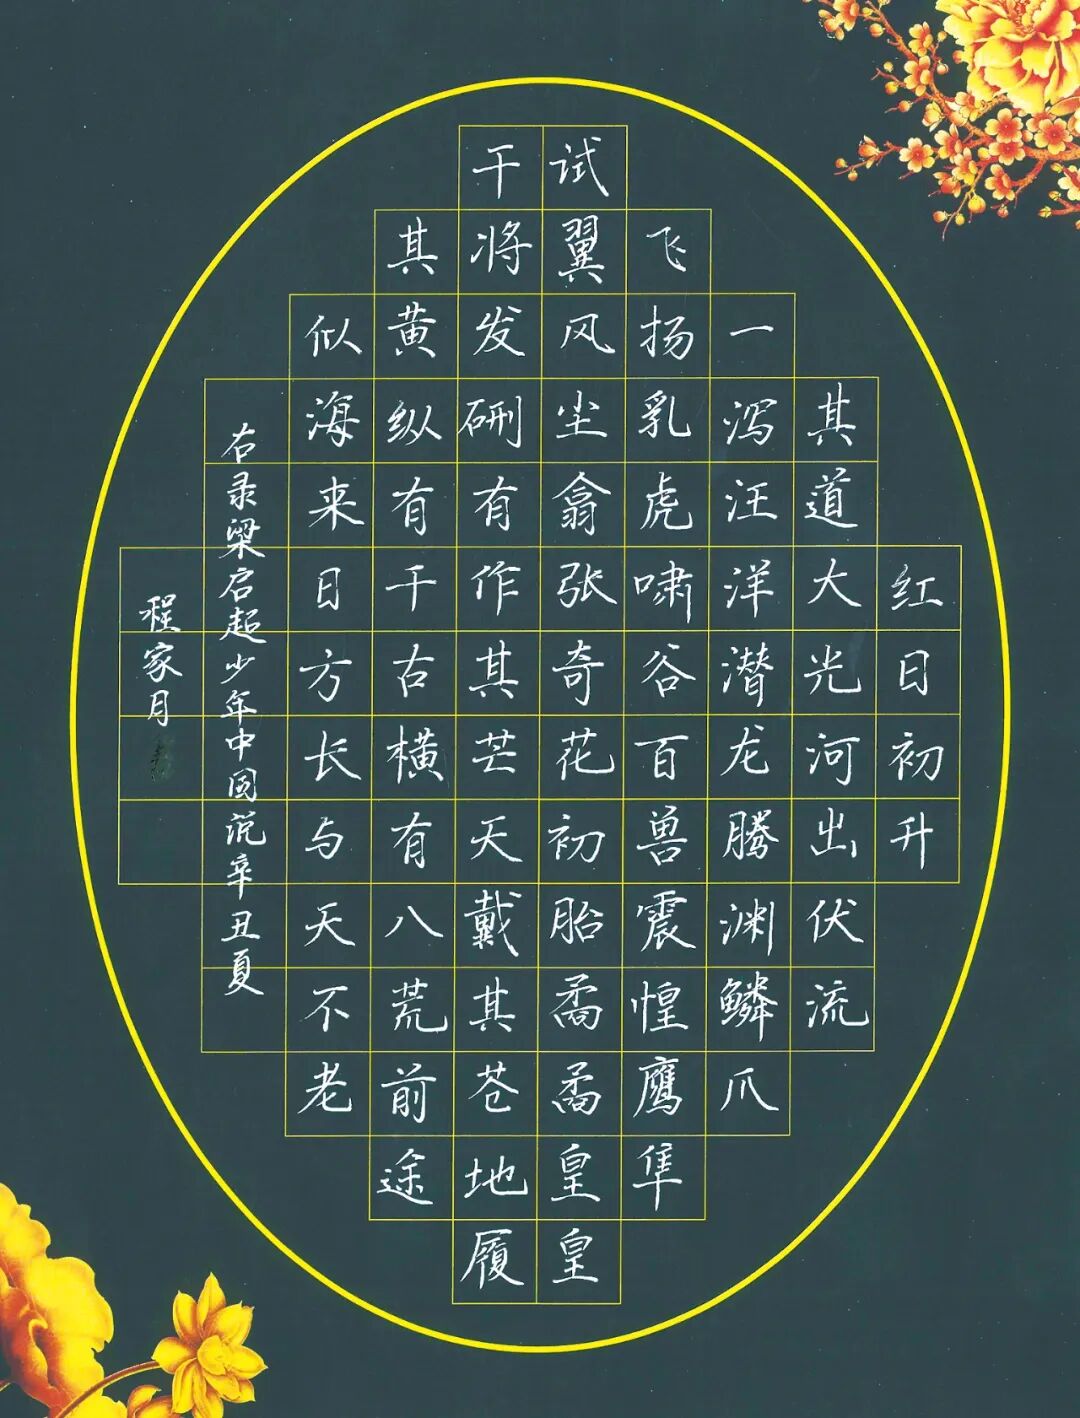 红日初升
其道大光河出伏流
一泻汪洋潜龙腾渊鳞爪
飞扬乳虎啸谷百兽震惶鹰隼
试翼风尘翕张奇花初胎矞矞皇皇
干将发硎有作其芒天戴其苍地履
其黄纵有千古横有八荒前途
似海来日方长与天不老
右录梁启超少年中国说辛丑夏
程家月